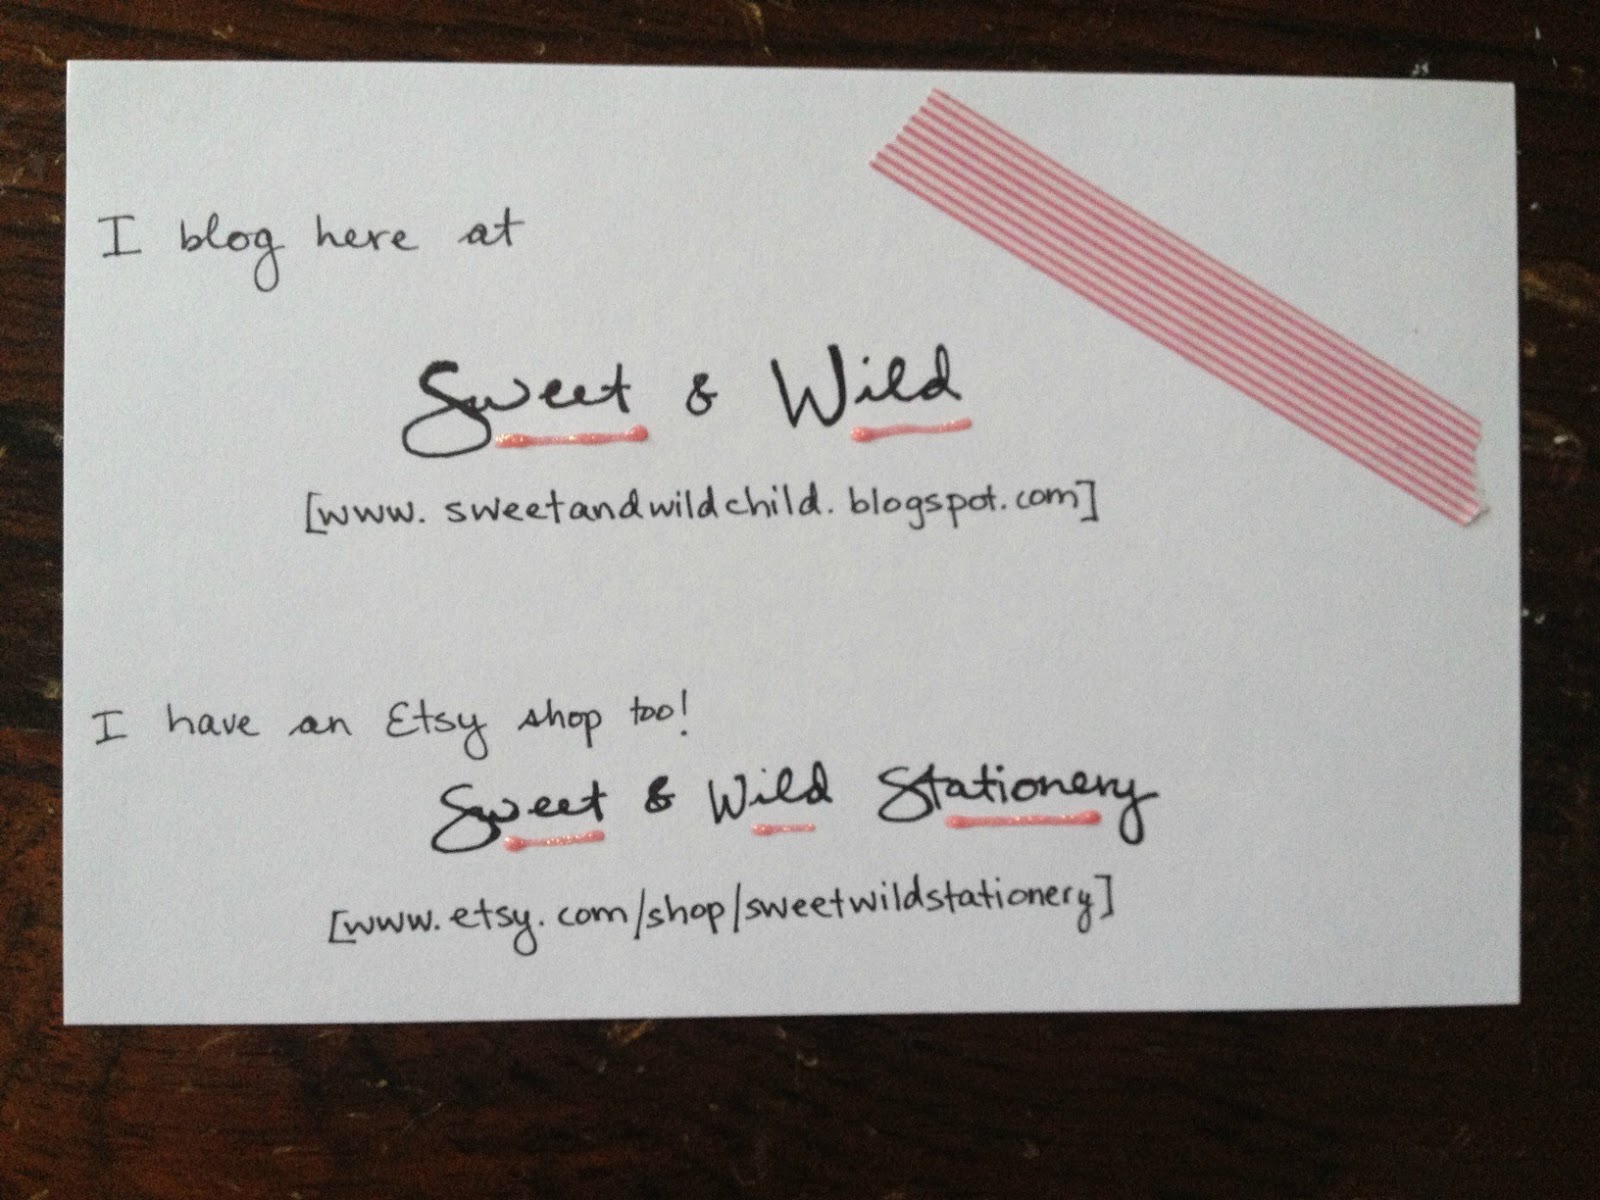 I blog here at
Sweet & Wild
[www.sweetandwildchild.blogspot.com]
I have an Etsy shop too!
Sweet & Wild Stationery
[www.etsy.com/shop/sweetwildstationery]